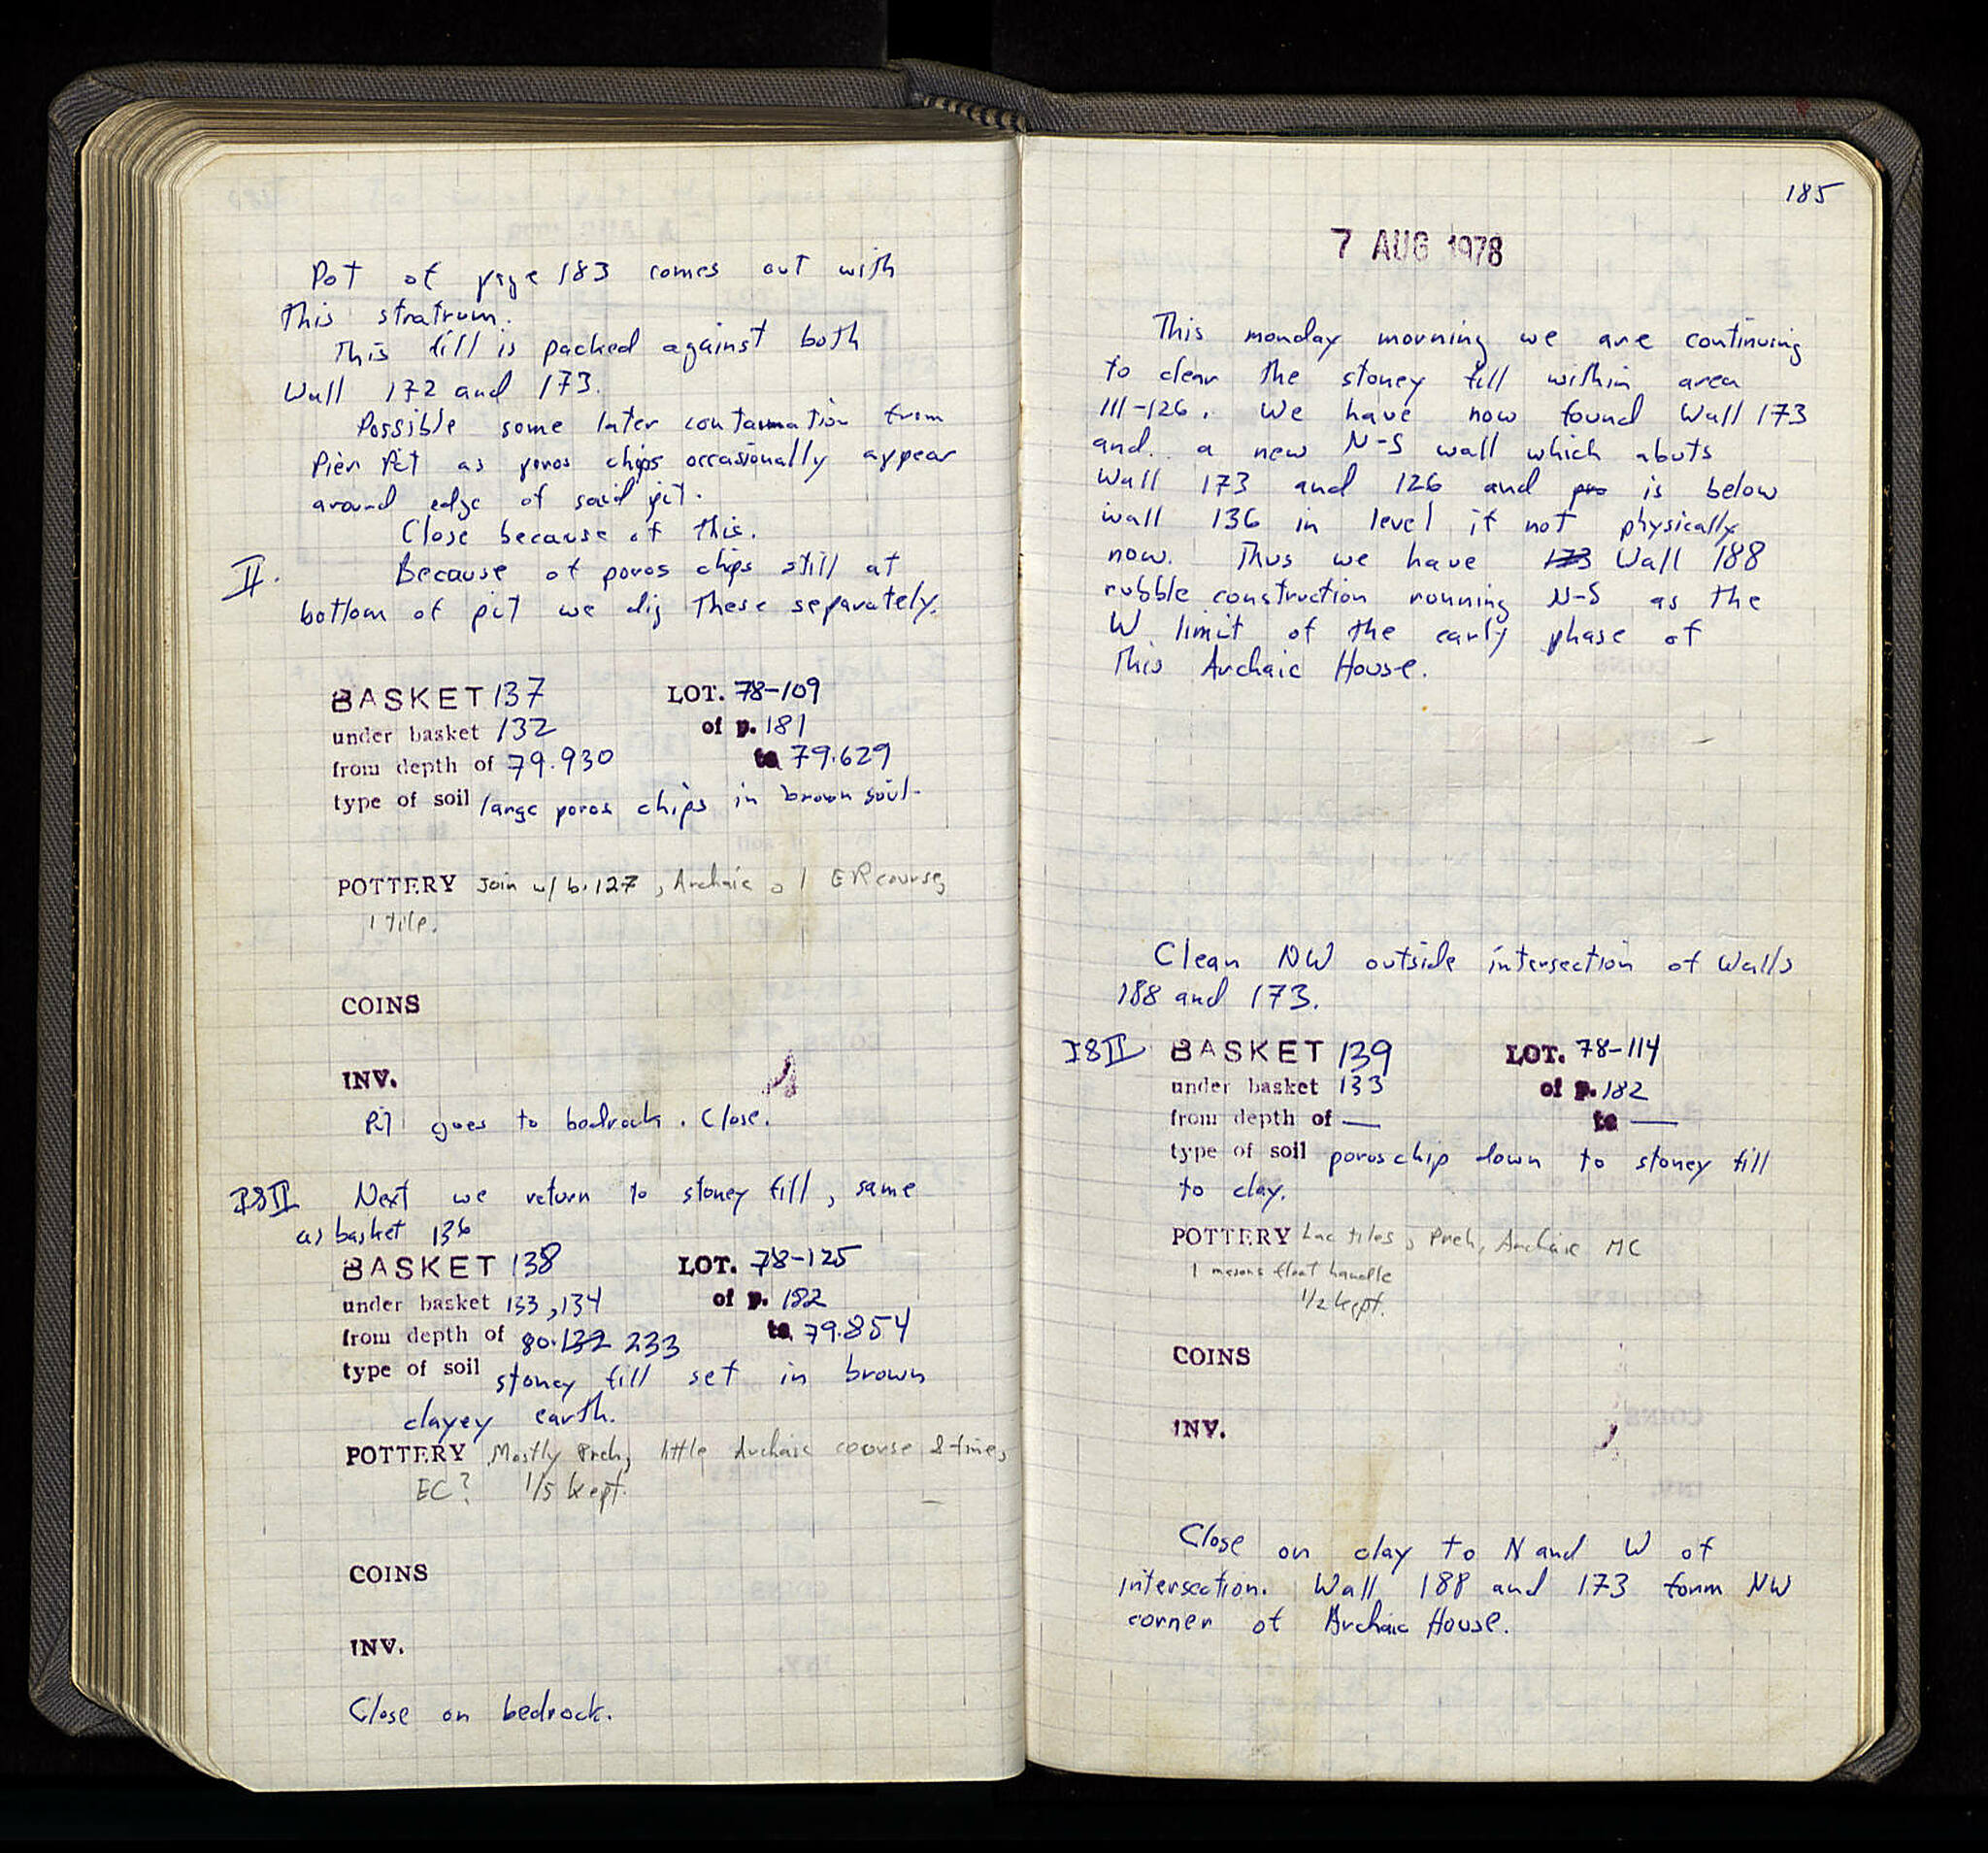 Pot of page 183 comes out with
this stratrum.
This fill is packed against both
Wall 172 and 173.
Possible some later contamnation from
Pier Pit as poros chips occasionally appear
around edge of said pit.
Close because of this.
II. Because of poros chips still at
bottom of pit we dig these separately.
BASKET 137 LOT. 78-109
under basket 132 of p. 181
from depth of 79.930 to 79.629
type of soil large poros chips in brown soil.
POTTERY Join w/ b.127, Archaic, 1 ER course,
1 tile.
COINS
INV.
Pit goes to bedrock. Close.
I&II Next we return to stoney fill, same
as basket 136
BASKET 138 LOT. 78-125
under basket 133, 134 of p. 182
from depth of 80.132 233 to 79.854
type of soil stoney fill set in brown
clayey earth.
POTTERY Mostly Preh, little Archaic course & fine,
EC? 1/5 kept.
COINS
INV.
Close on bedrock.
185
7 AUG 1978
This monday morning we are continuing
to clear the stoney fill within area
111-126. We have now found Wall 173
and a new N-S wall which abuts
Wall 173 and 126 and pro is below
wall 136 in level if not physically
now. Thus we have 173 Wall 188
rubble construction running N-S as the
W limit of the early phase of
this Archaic House.
Clean NW outside intersection of Walls
188 and 173.
I&II BASKET 139 LOT. 78-114
under basket 133 of p. 182
from depth of — to —
type of soil poros chip down to stoney fill
to clay.
POTTERY Lac tiles, Preh, Archaic MC
1 handle
1/2 kept.
COINS
INV.
Close on clay to N and W of
intersection. Wall 188 and 173 form NW
corner of Archaic House.